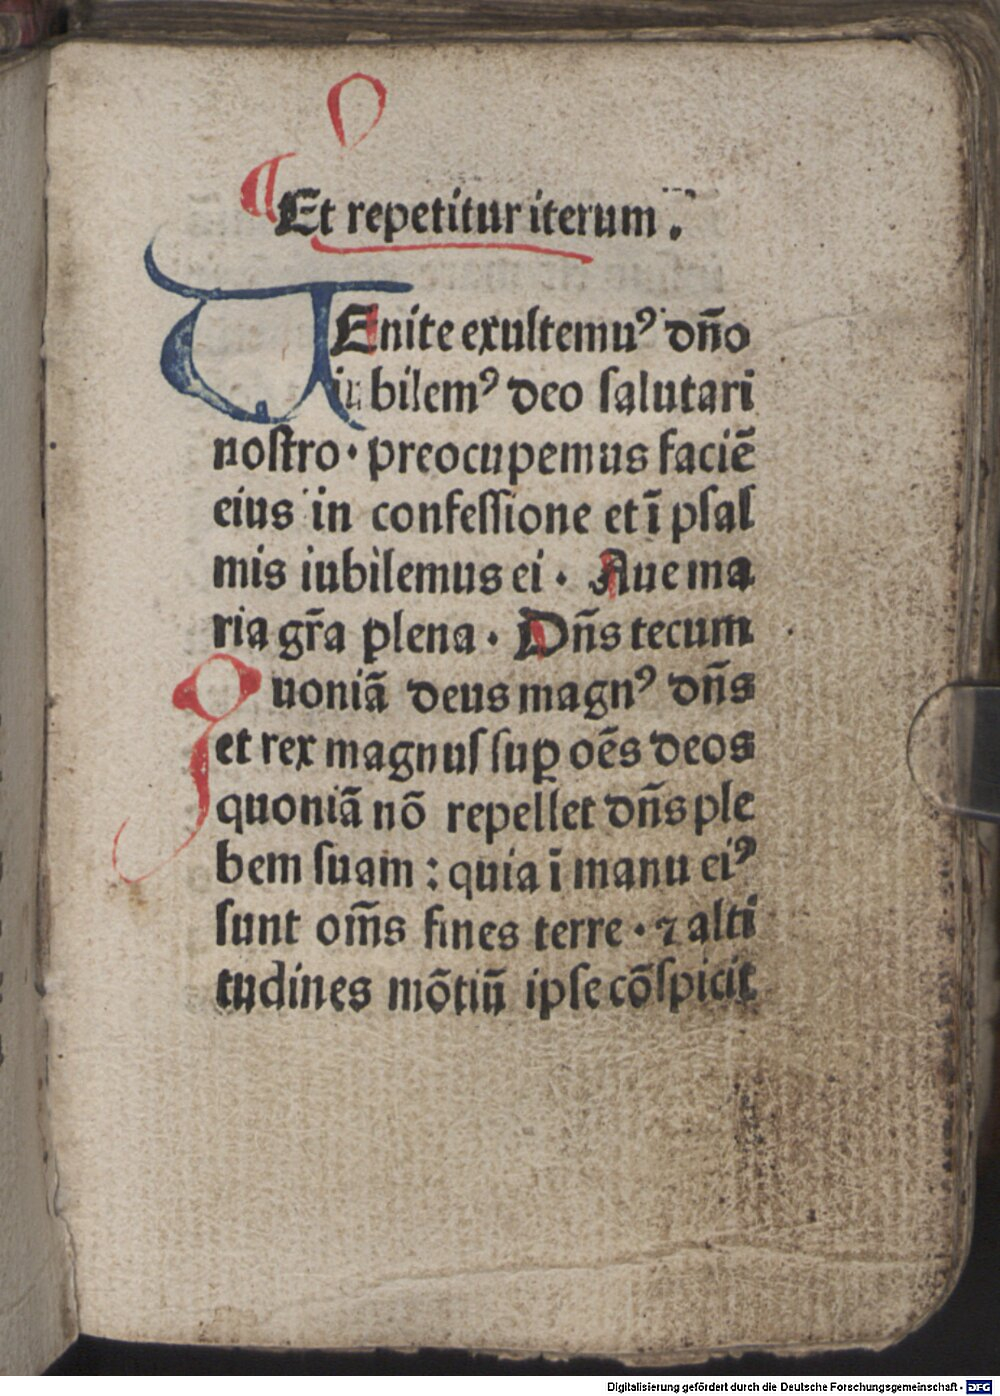 ¶ Et repetitur iterum .
VEnite exultemuꝰ dn̄o
iubilemꝰ deo ſalutari
noſtro · preocupemus faciē
eius in confeſſione et ī pſal
mis iubilemus ei · Aue ma
ria gr̄a plena · Dn̄s tecum
Quoniā deus magnꝰ dn̄s
et rex magnuſ ſuꝑ oēs deos
quoniā nō repellet dn̄s ple
bem ſuam : quia ī manu eiꝰ
ſunt om̄s fines terre · ⁊ alti
tudines mōtiū ipſe cōſpicit
Digitalisierung gefördert durch die Deutsche Forschungsgemeinschaft - DFG